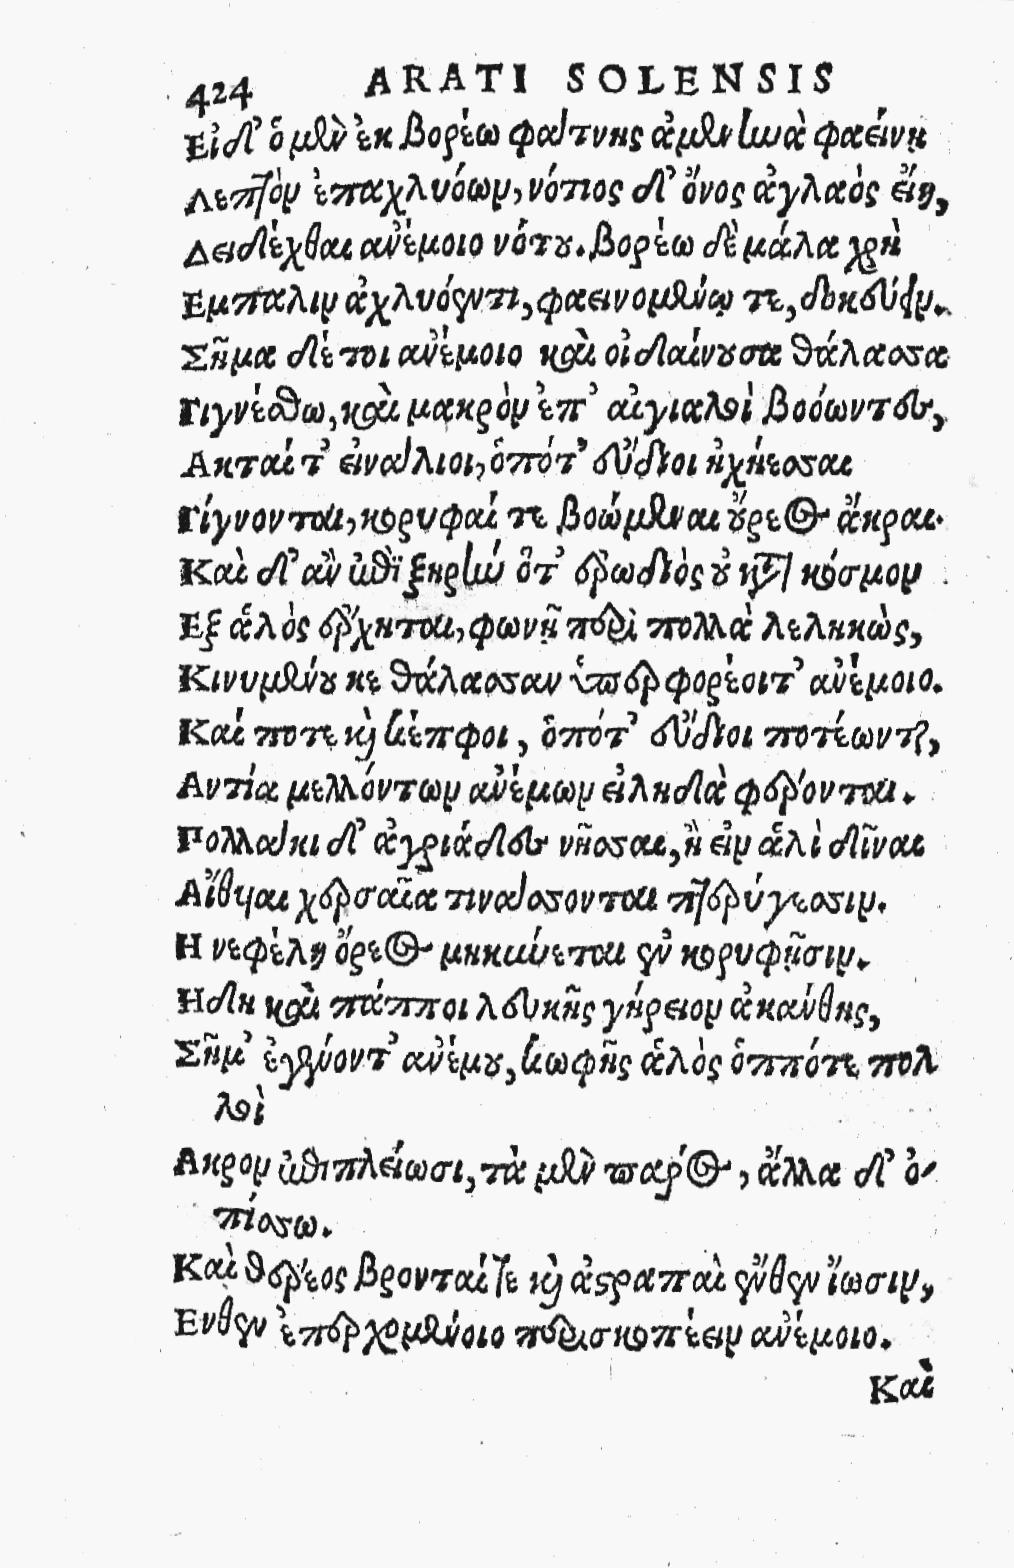 424 ARATI SOLENSIS
Εἰ δ' ὁ μὲν ἐκ βορέω φάτνης ἀμενηνὰ φαείνῃ
Λεπτὸν ἐπαχλυόων, νότιος δ' ὄνος ἀγλαὸς εἴη,
Δειδέχθαι ἀνέμοιο νότου. βορέω δὲ μάλα χρὴ
Εμπαλιν ἀχλυόεντι, φαεινομένῳ τε, δοκεύειν.
Σῆμα δέ τοι ἀνέμοιο καὶ οἰδαίνουσα θάλασσα
Γιγνέσθω, καὶ μακρὸν ἐπ' αἰγιαλοὶ βοόωντες,
Ακταί τ' εἰνάλιοι, ὁπότ' εὔδιοι ἠχήεσσαι
Γίγνονται, κορυφαί τε βοώμεναι οὔρεος ἄκραι.
Καὶ δ' ἂν ἐπὶ ξηρὴν ὅτ' ἐρωδιὸς οὐ κατὰ κόσμον
Εξ ἁλὸς ἔρχηται, φωνῇ περὶ πολλὰ λεληκὼς,
Κινυμένου κε θάλασσαν ὑπερφορέοιτ' ἀνέμοιο.
Καί ποτε καὶ κέπφοι, ὁπότ' εὔδιοι ποτέωνται,
Αντία μελλόντων ἀνέμων εἰληδὰ φέρονται.
Πολλάκι δ' ἀγριάδες νῆσσαι, ἢ εἰν ἁλὶ δῖναι
Αἴθυιαι χερσαῖα τινάσσονται πτερύγεσσιν.
Η νεφέλη ὄρεος μηκύνεται ἐν κορυφῇσιν.
Ηδη καὶ πάπποι λευκῆς γήρειον ἀκάνθης,
Σῆμ' ἐγένοντ' ἀνέμου, κωφῆς ἁλὸς ὁππότε πολ
λοὶ
Ακρον ἐπιπλείωσι, τὰ μὲν πάρος, ἄλλα δ' ὀ-
πίσσω.
Καὶ θέρεος βρονταί τε καὶ ἀστραπαὶ ἔνθεν ἴωσιν,
Ενθεν ἐπερχομένοιο περισκοπέειν ἀνέμοιο.
Καὶ